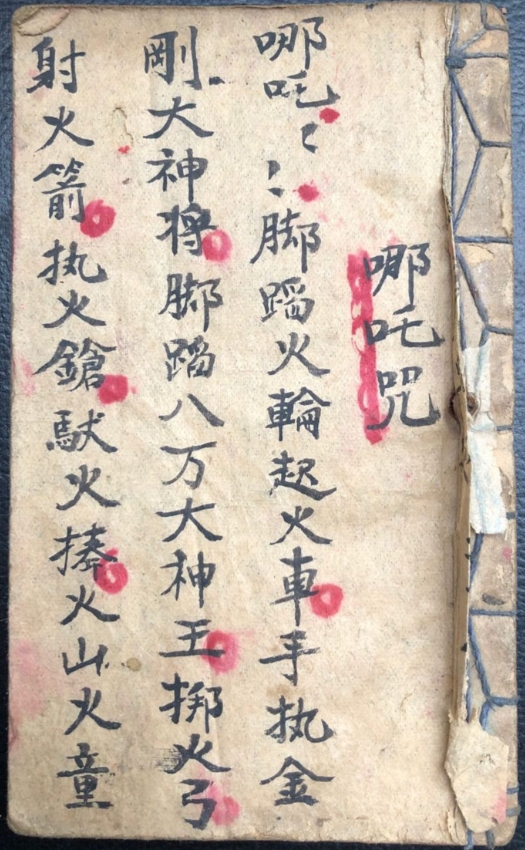 哪吒咒
哪吒〻〻脚蹈火輪起火車手执金
剛大神将脚蹈八万大神王挷火弓
射火箭执火鎗䭾火捧火山火童